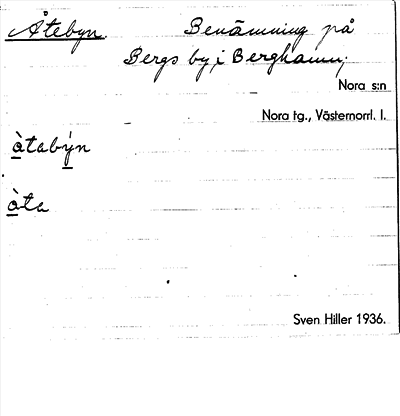 Åtebyn. Benämning på
Bergs by, i Berghamn;
Nora s:n
Nora tg., Västernorrl. l.
àtabýn
àta
Sven Hiller 1936.